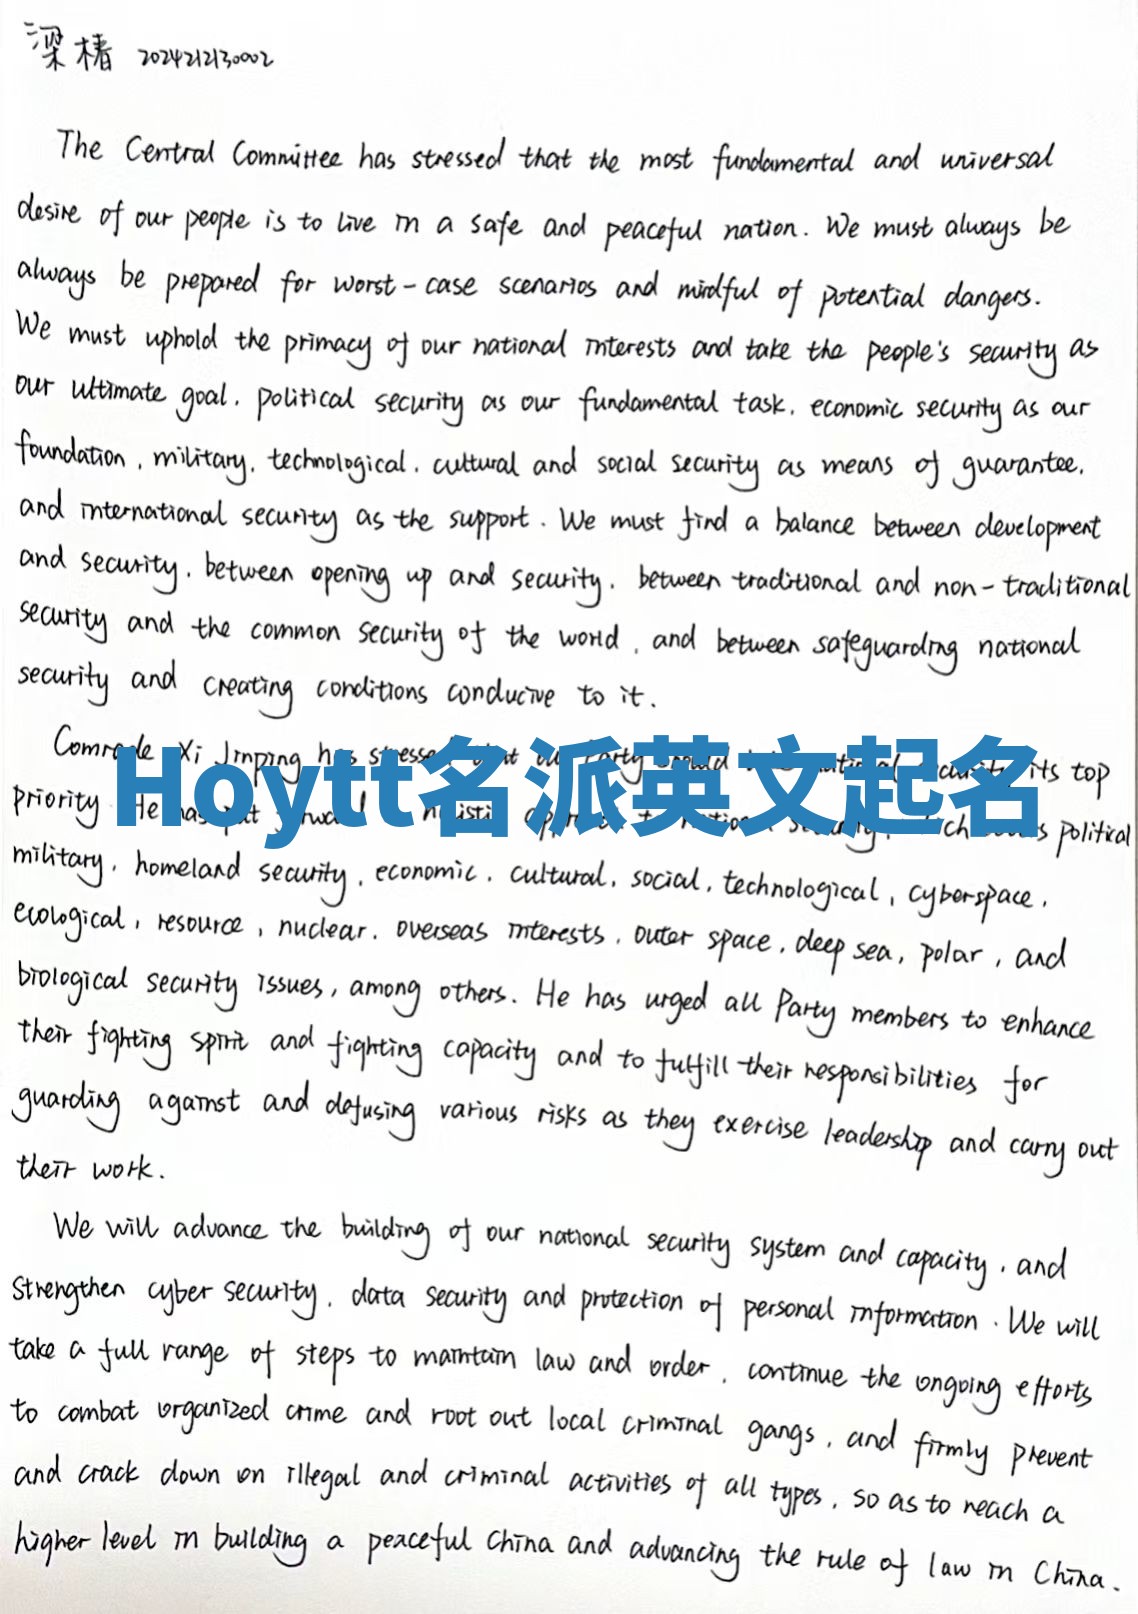 梁椿 2024212130002
The Central Committee has stressed that the most fundamental and universal
desire of our people is to live in a safe and peaceful nation. We must always be
always be prepared for worst-case scenarios and mindful of potential dangers.
We must uphold the primacy of our national interests and take the people's security as
our ultimate goal, political security as our fundamental task, economic security as our
foundation, military, technological, cultural and social security as means of guarantee,
and international security as the support. We must find a balance between development
and security, between opening up and security, between traditional and non-traditional
security and the common security of the world, and between safeguarding national
security and creating conditions conducive to it.
Comrade Xi Jinping has stressed that our Party its top
Hoytt名派英文起名
priority He has put political
military, homeland security, economic, cultural, social, technological, cyberspace,
ecological, resource, nuclear, overseas interests, outer space, deep sea, polar, and
biological security issues, among others. He has urged all Party members to enhance
their fighting spirit and fighting capacity and to fulfill their responsibilities for
guarding against and defusing various risks as they exercise leadership and carry out
their work.
We will advance the building of our national security system and capacity, and
strengthen cyber security, data security and protection of personal information. We will
take a full range of steps to maintain law and order, continue the ongoing efforts
to combat organized crime and root out local criminal gangs, and firmly prevent
and crack down on illegal and criminal activities of all types, so as to reach a
higher level in building a peaceful China and advancing the rule of law in China.